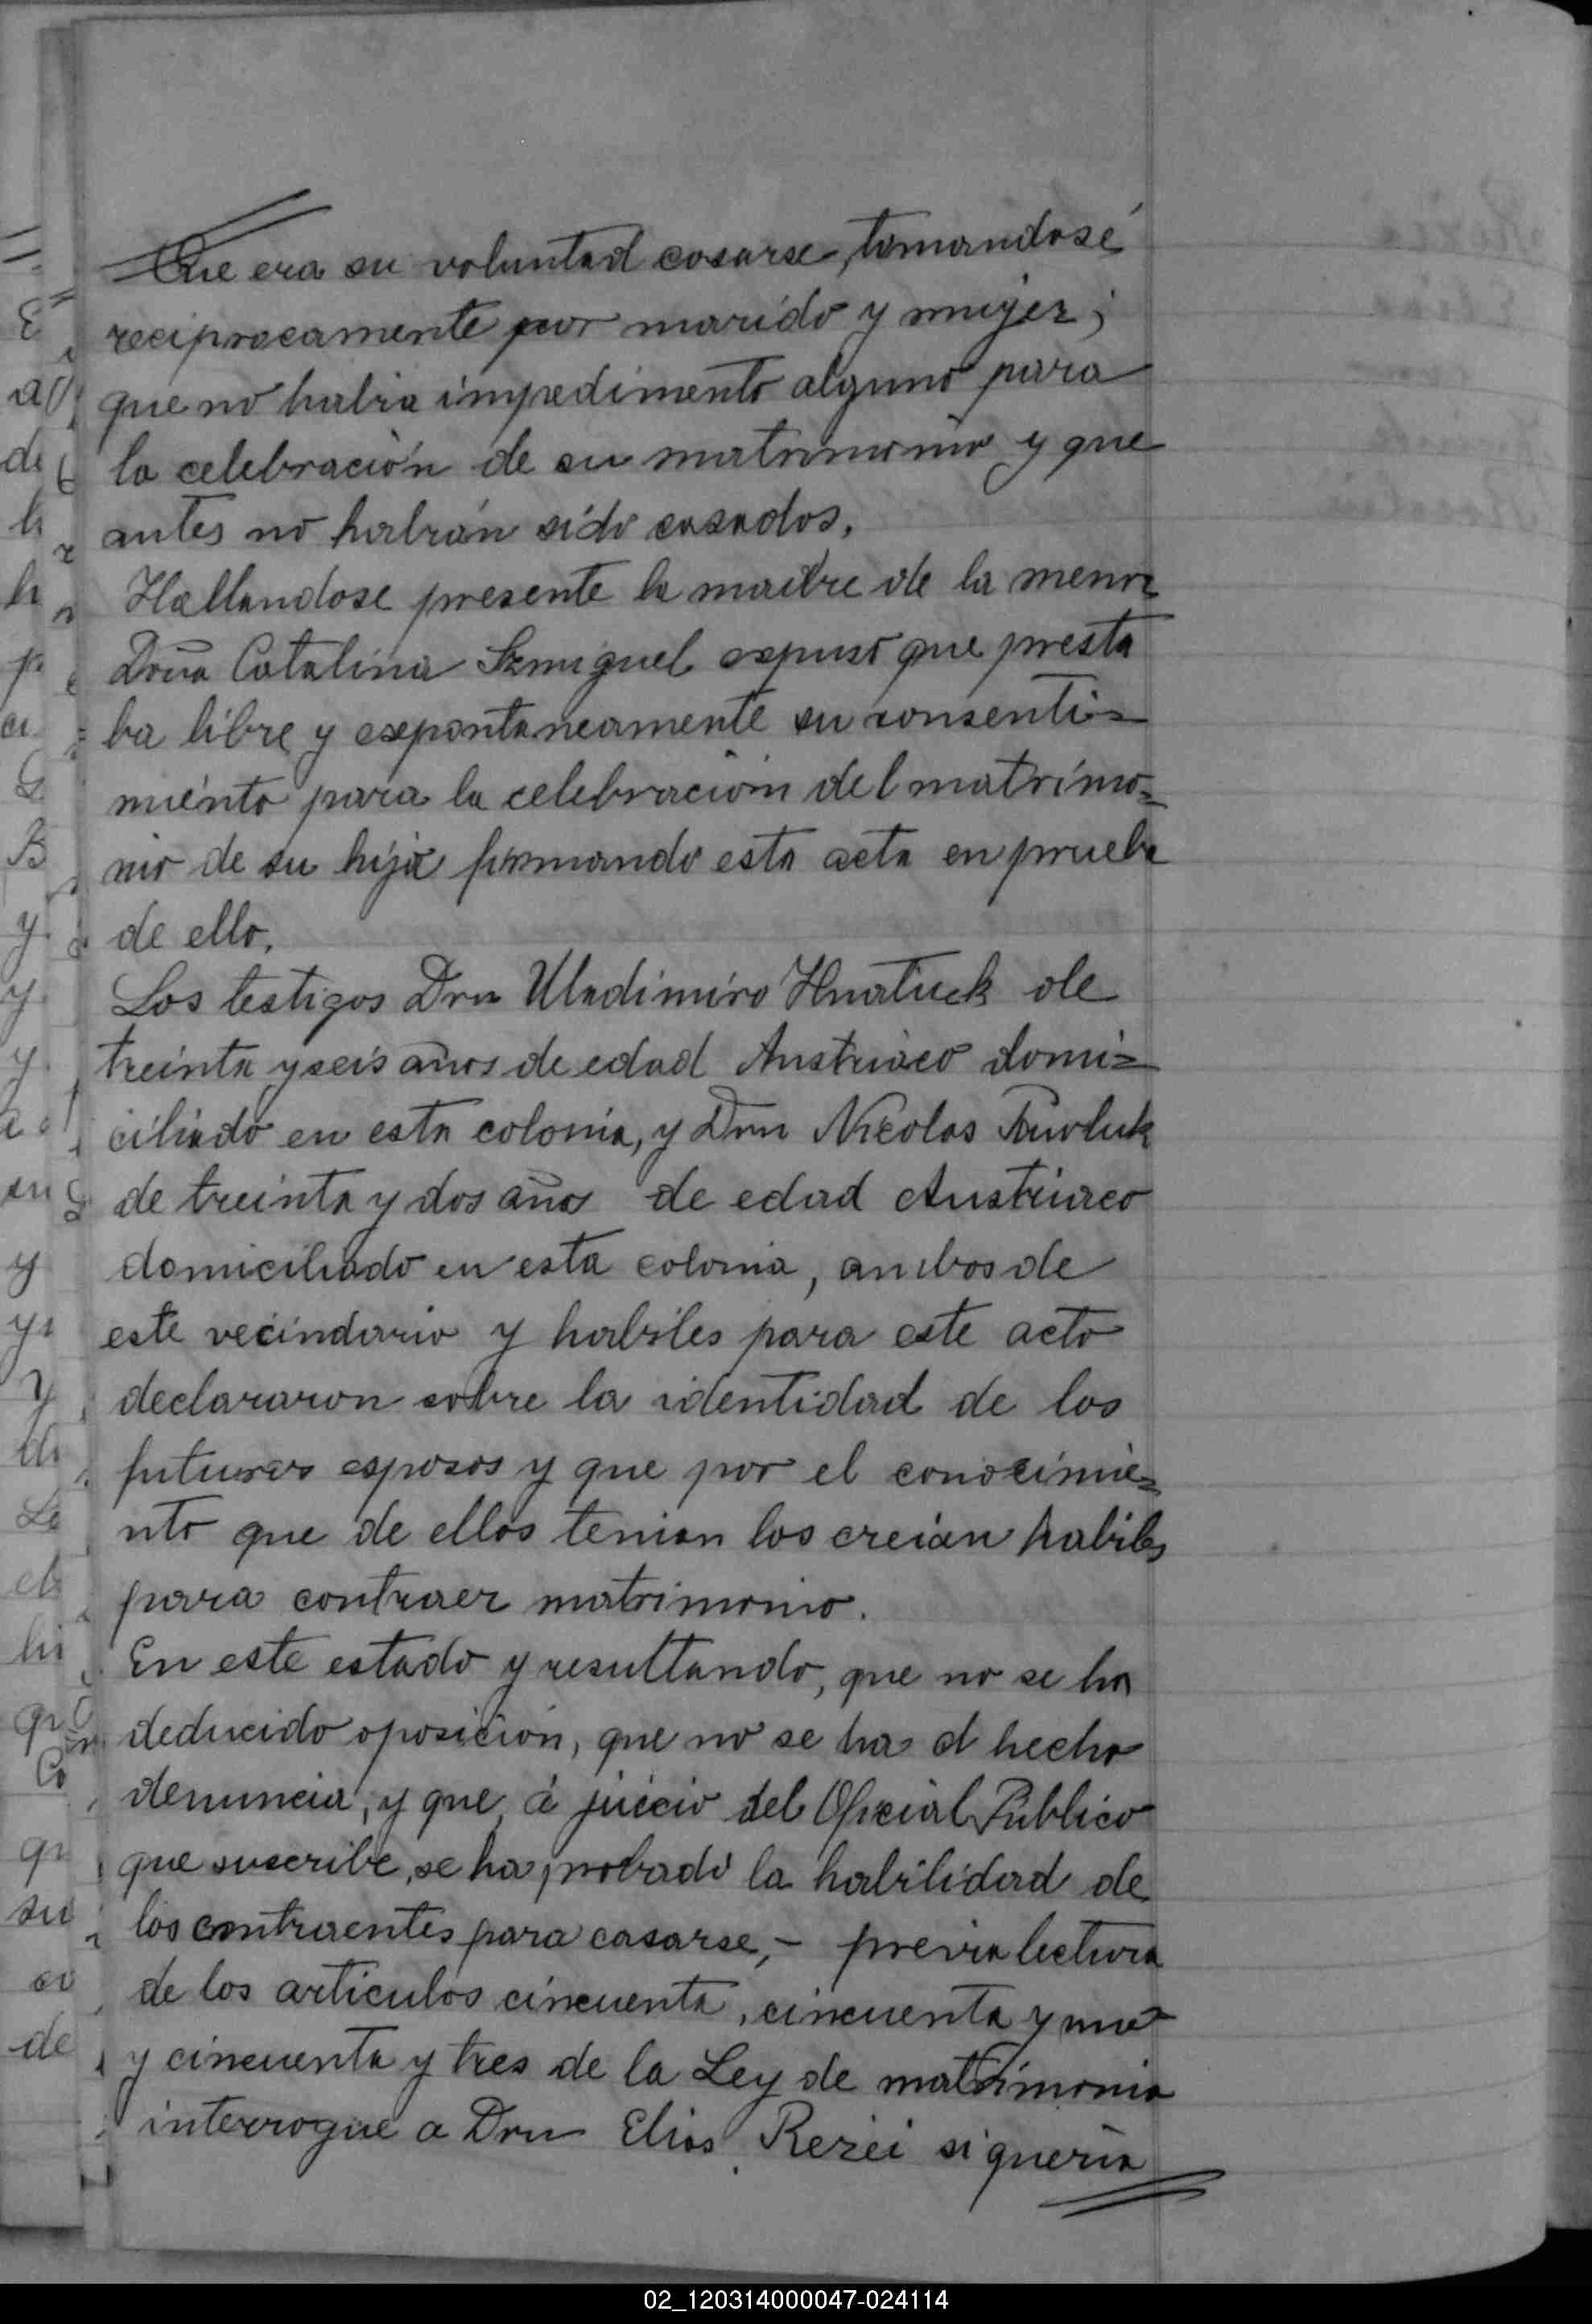 Que era su voluntad casarse, tomandosé
reciprocamente por marido y mujer;
que no habia impedimento alguno para
la celebración de su matrimonio y que
antes no habian sido casados.
Hallandose presente la madre de la menor
Doña Catalina Szmiguel expuso que presta
ba libre y espontaneamente su consenti=
miento para la celebracion del matrimo=
nio de su hija firmando esta acta en prueba
de ello.
Los testigos Don Uladimiro Hnatiuck de
treinta y seis años de edad Austriaco domi=
ciliado en esta colonia, y Don Nicolas Pawluk
de treinta y dos años de edad Austriaco
domiciliado en esta colonia, ambos de
este vecindario y habiles para este acto
declararon sobre la identidad de los
futuros esposos y que por el conocimie=
nto que de ellos tenian los creian habiles
para contraer matrimonio.
En este estado y resultando, que no se ha
deducido oposición, que no se ha d hecho
denuncia, y que á juicio del Oficial Público
que suscribe, se ha probado la habilidad de
los contraentes para casarse,- previa lectura
de los articulos cincuenta, cincuenta y uno
y cincuenta y tres de la Ley de matrimonio
interrogue a Don Elias Rezei si queria
02_120314000047-024114